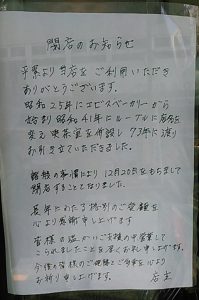 閉店のお知らせ
平素より当店をご利用いただき
ありがとうございます。
昭和25年にエビスベーカリーから
始まり昭和41年にルーブルに店名を
変え 喫茶室を併設し 73年に渡り
お引き立ていただきました。
諸般の事情により 12月20日をもちまして
閉店することとなりました。
長年にわたる格別のご愛顧を
心より感謝申し上げます
皆様の温かいご支援の中営業して
こられましたことを厚くお礼申し上げます。
今後も皆様のご健勝とご多幸を心より
お祈り申し上げます。
店主